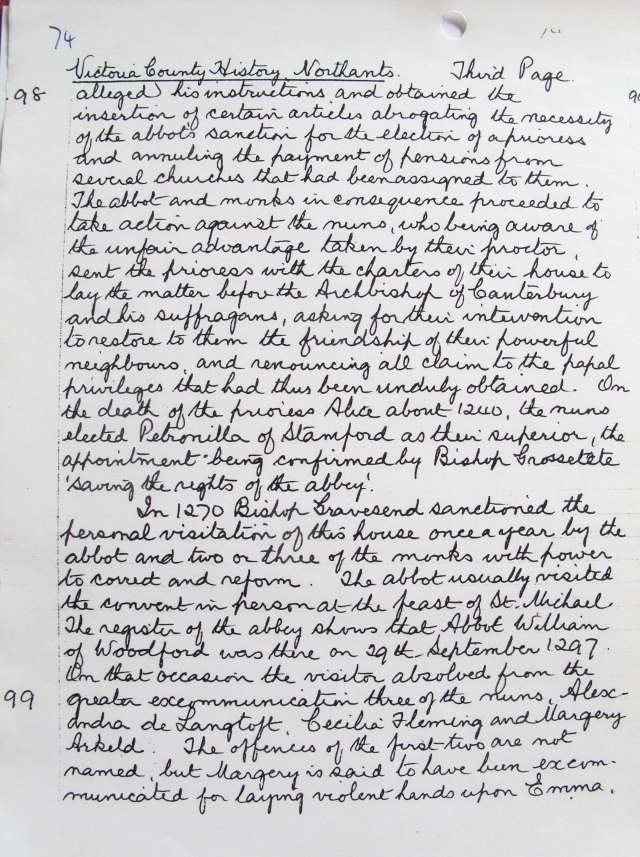 74
Victoria County History, Northants. Third Page
98 alleged) his instructions and obtained the
insertion of certain articles abrogating the necessity
of the abbot's sanction for the election of a prioress
and annulling the payment of pensions from
several churches that had been assigned to them.
The abbot and monks in consequence proceeded to
take action against the nuns, who being aware of
the unfair advantage taken by their proctor,
sent the prioress with the charters of their house to
lay the matter before the Archbishop of Canterbury
and his suffragans, asking for their intervention
to restore to them the friendship of their powerful
neighbours, and renouncing all claim to the papal
privileges that had thus been unduly obtained. On
the death of the prioress Alice about 1240, the nuns
elected Petronilla of Stamford as their superior, the
appointment being confirmed by Bishop Grossetete
'saving the rights of the abbey'.
In 1270 Bishop Gravesend sanctioned the
personal visitation of this house once a year by the
abbot and two or three of the monks with power
to correct and reform. The abbot usually visited
the convent in person at the feast of St. Michael.
The register of the abbey shows that Abbot William
of Woodford was there on 29th September 1297.
On that occasion the visitor absolved from the
99 greater excommunication three of the nuns, Alex-
andra de Langtoft, Cecilia Fleming and Margery
Arkeld. The offences of the first two are not
named, but Margery is said to have been excom-
municated for laying violent hands upon Emma,